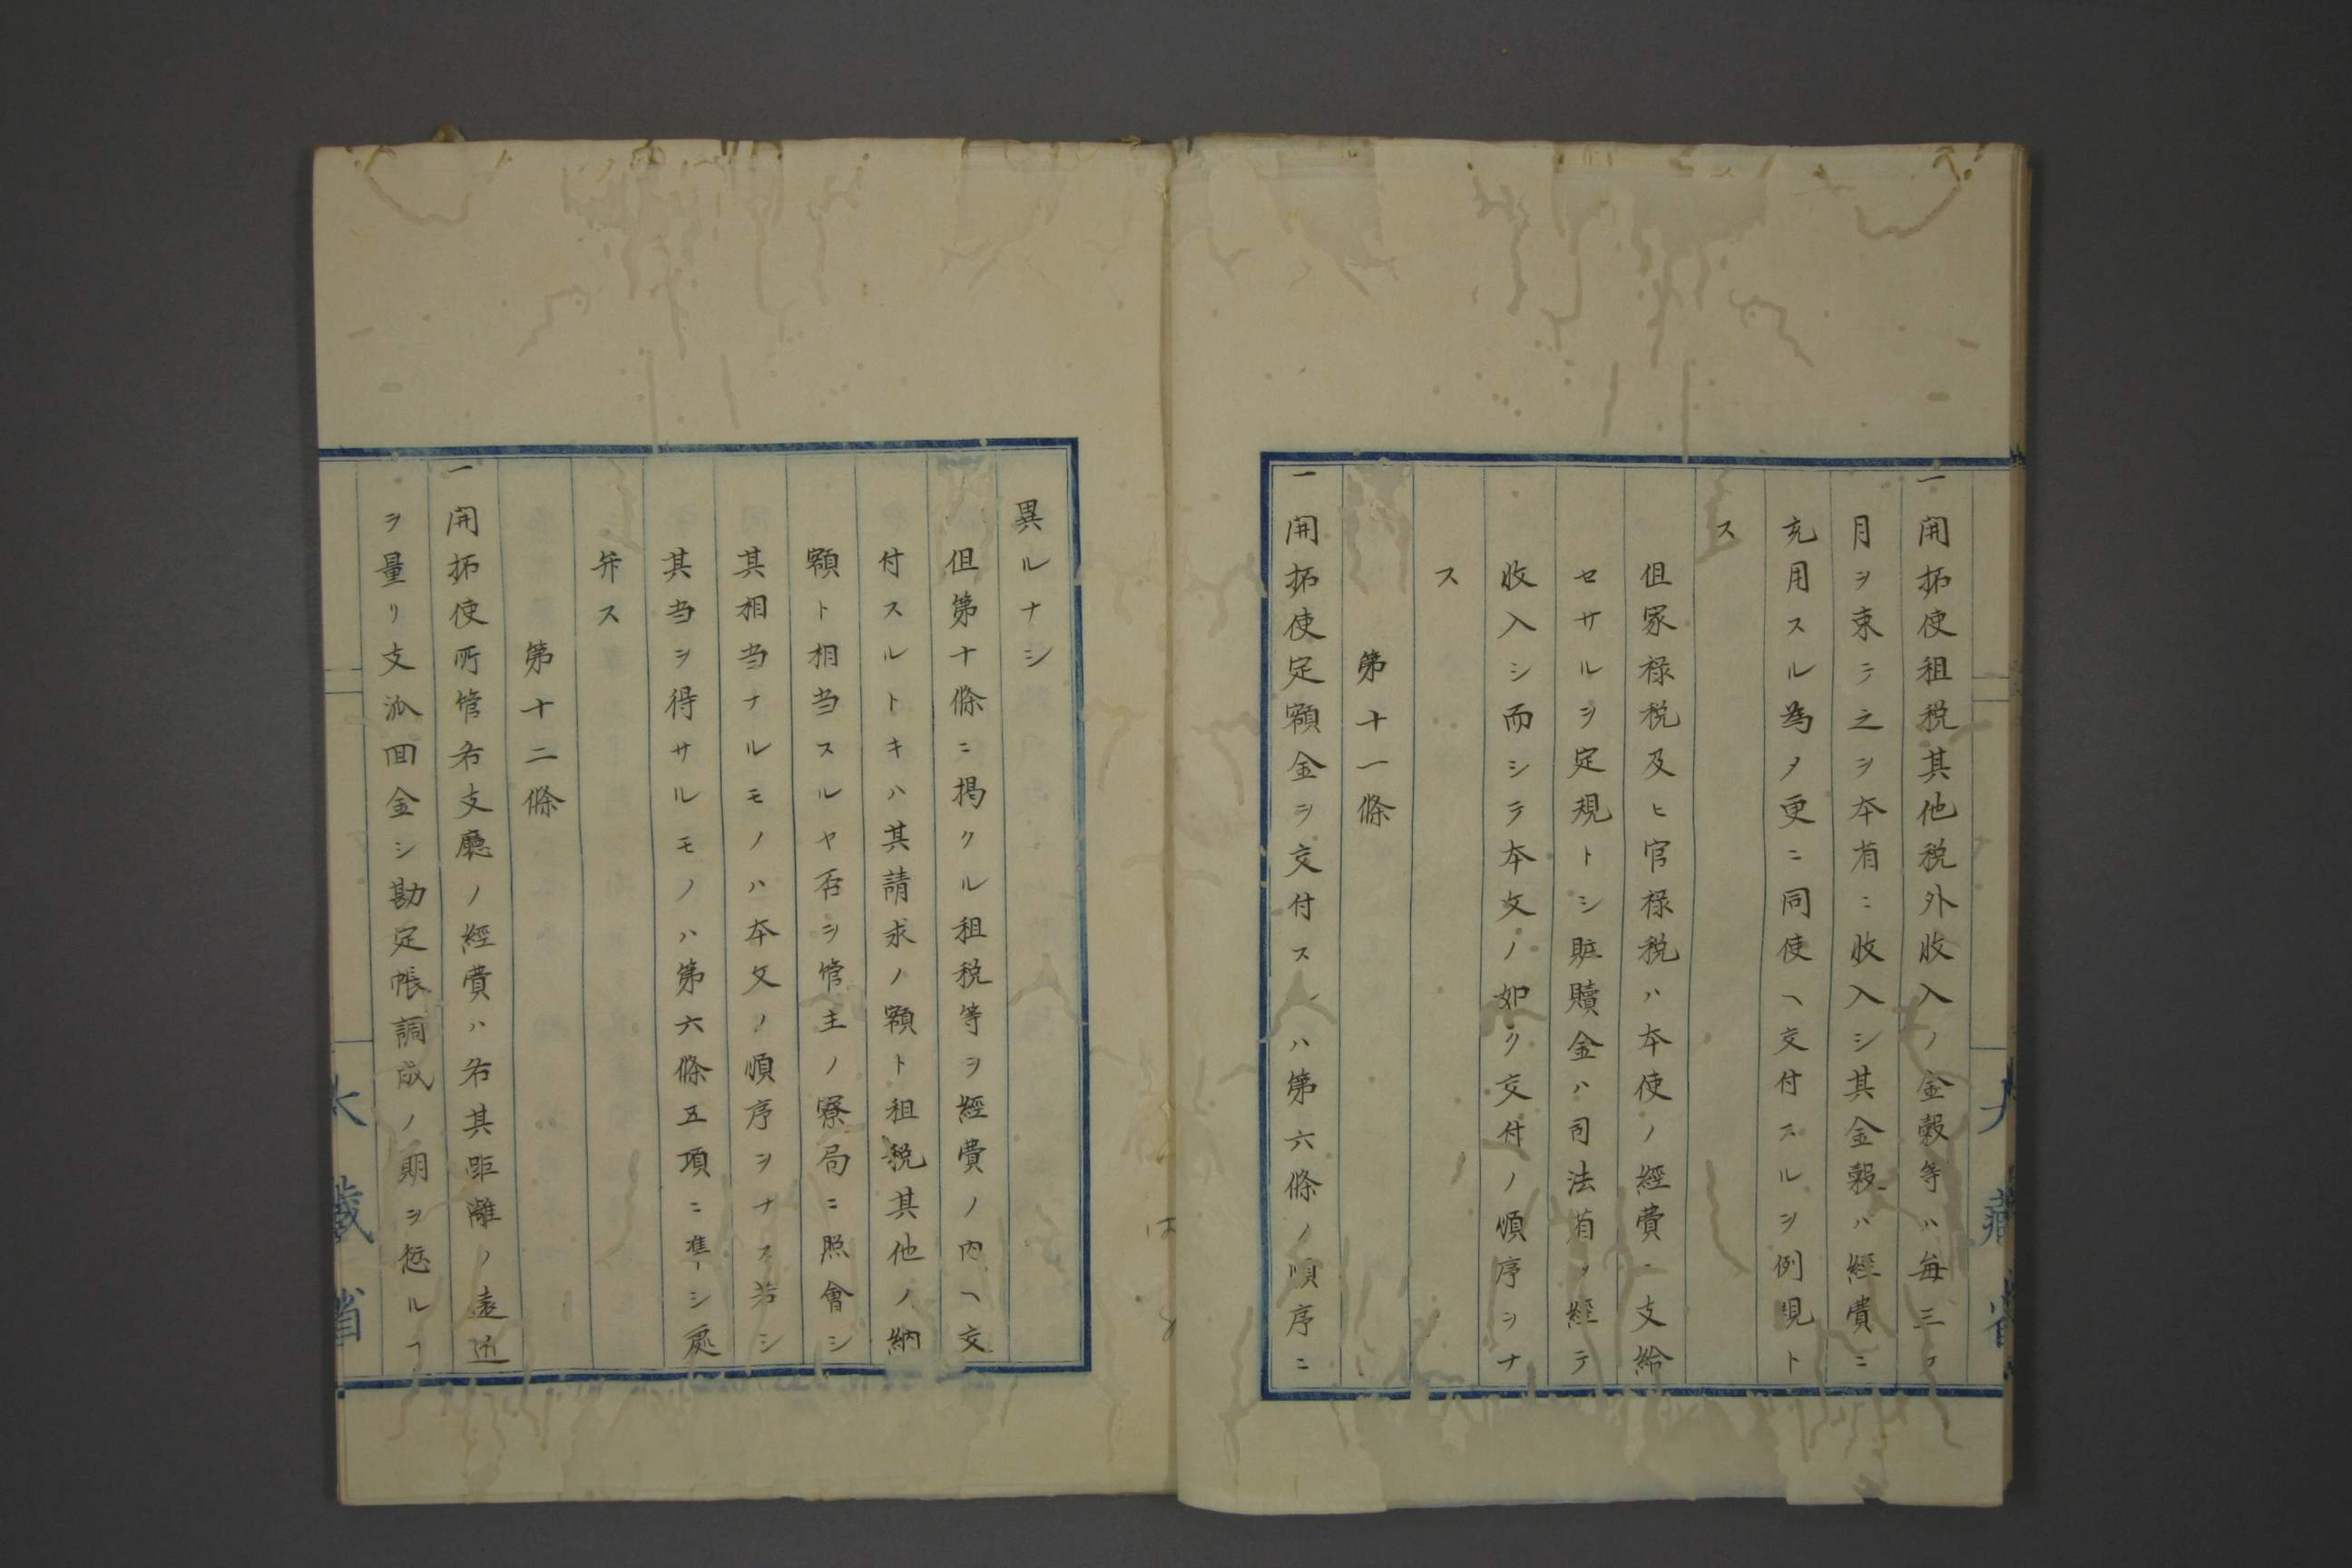 一開拓使租税其他税外收入ノ金穀等ハ毎三ケ
月ヲ束テ之ヲ本省ニ收入シ其金穀ハ經費ニ
充用スル為メ更ニ同使ヘ交付スルヲ例規ト
ス
但家禄税及ヒ官禄税ハ本使ノ經費 支給
セサルヲ定規トシ賍贖金ハ司法省ヲ經テ
收入シ而シテ本文ノ如ク交付ノ順序ヲナ
ス
第十一條
一開拓使定額金ヲ交付ス ハ第六條ノ順序ニ
異ルナシ
但第十條ニ掲クル租税等ヲ經費ノ内ヘ交
付スルトキハ其請求ノ額ト租税其他ノ納
額ト相当スルヤ否ヲ管主ノ寮局ニ照會シ
其相当ナルモノハ本文ノ順序ヲナス若シ
其当ヲ得サルモノハ第六條五項ニ準シ處
弁ス
第十二條
一開拓使所管各支廳ノ經費ハ各其距離ノ遠近
ヲ量リ支派回金シ勘定帳調成ノ期ヲ愆ルヿ
大藏省
大藏省